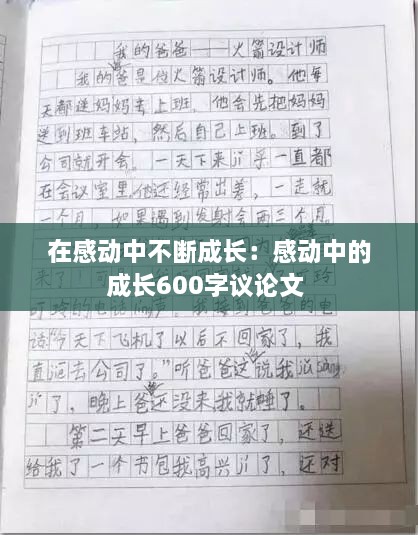 我的爸爸——火箭设计师
我的爸是位火箭设计师。他每
天都送妈妈去上班，他会先把妈妈
送到班车站，然后自己上班。到了
公司就开会，一天下来几乎一直都
在会议室里。他还经常出差，一走就
一个月，如果遇到发射会两三个月。
在感动中不断成长：感动中的
成长600字议论文
话“今天下飞机了以后不回家了，我
直 去公司了。”听爸爸这说我 
了，晚上爸还没来我就睡了。
第二天早上爸爸回家了，还送
给我了一个书包我高兴 了，还对